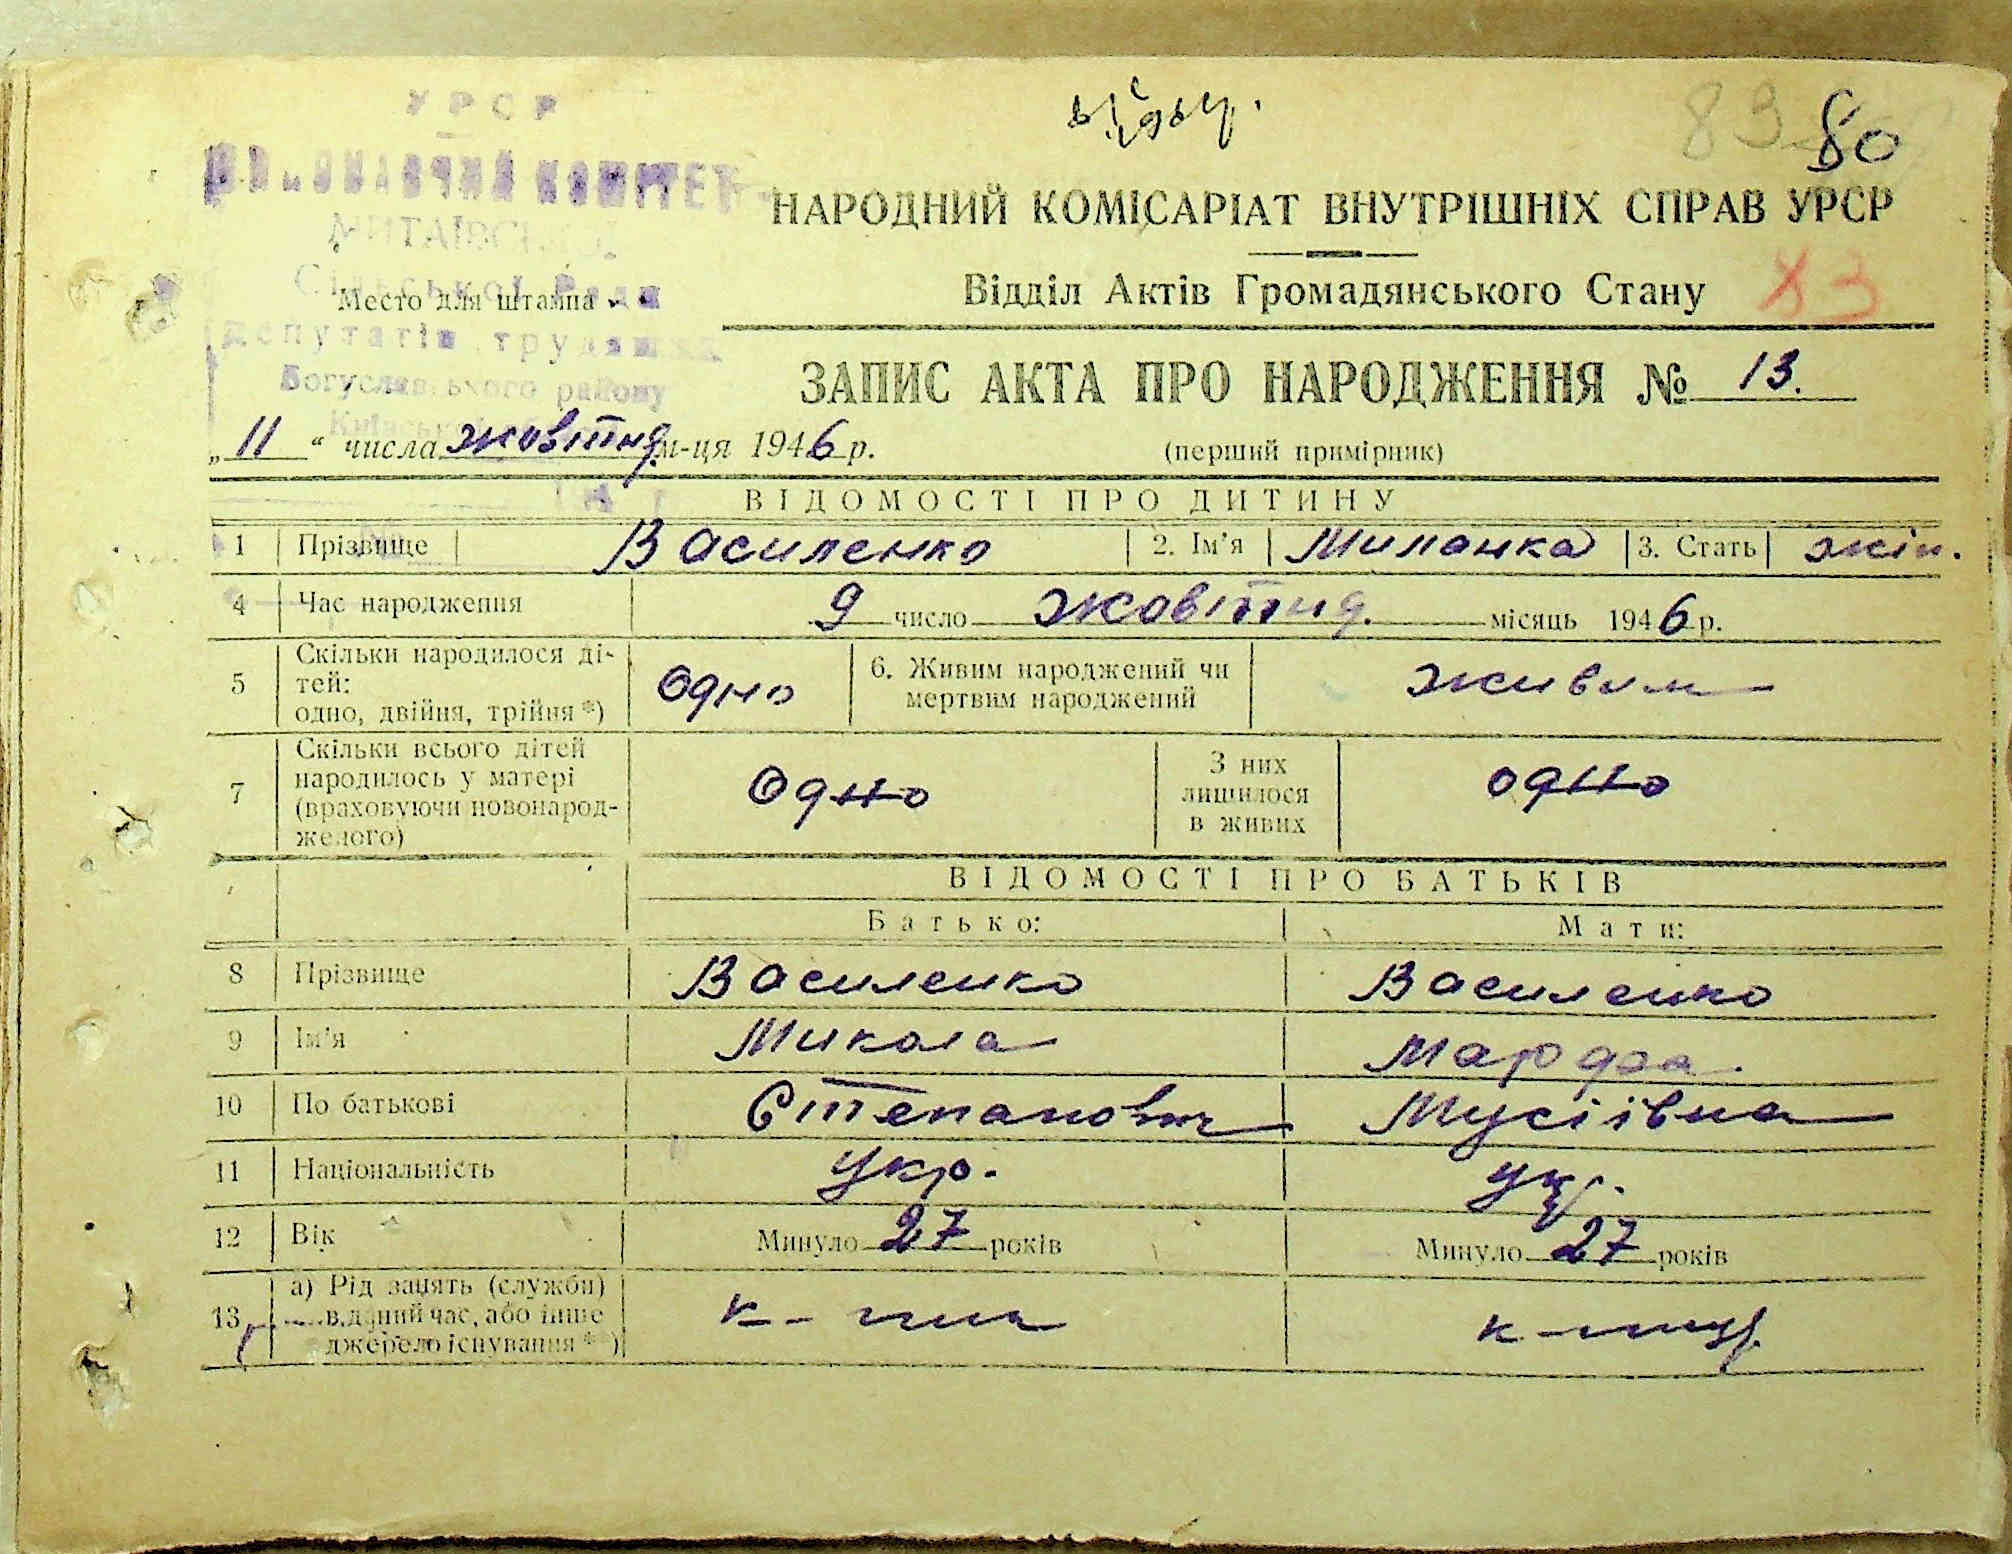 УРСР
80
83
ВИКОНАВЧИЙ КОМІТЕТ
НАРОДНИЙ КОМІСАРІАТ ВНУТРІШНІХ СПРАВ УРСР
МИТАЇВСЬКОЇ
Сільської Ради
Место для штампа
Відділ Актів Громадянського Стану 83
депутатів трудящих
Богуславського району
ЗАПИС АКТА ПРО НАРОДЖЕННЯ № 13.
„11“ числа жовтня м-ця 1946 р. (перший примірник)
ВІДОМОСТІ ПРО ДИТИНУ
1 Прізвище Василенко 2. Ім'я Миланка 3. Стать жін.
4 Час народження 9 число жовтня місяць 1946 р.
5 Скільки народилося ді-
тей:
одно, двійня, трійня *) Одно 6. Живим народжений чи
мертвим народжений живим
7 Скільки всього дітей
народилось у матері
(враховуючи новонарод-
желого) Одно З них
лишилося
в живих одно
ВІДОМОСТІ ПРО БАТЬКІВ
Батько: Мати:
8 Прізвище Василенко Василенко
9 Ім'я Микола Марфа
10 По батькові Степанович Мусіївна
11 Національність укр. укр.
12 Вік Минуло 27 років Минуло 27 років
13 а) Рід занять (служби)
в даний час, або інше
джерело існування *) к-ник к-ниця